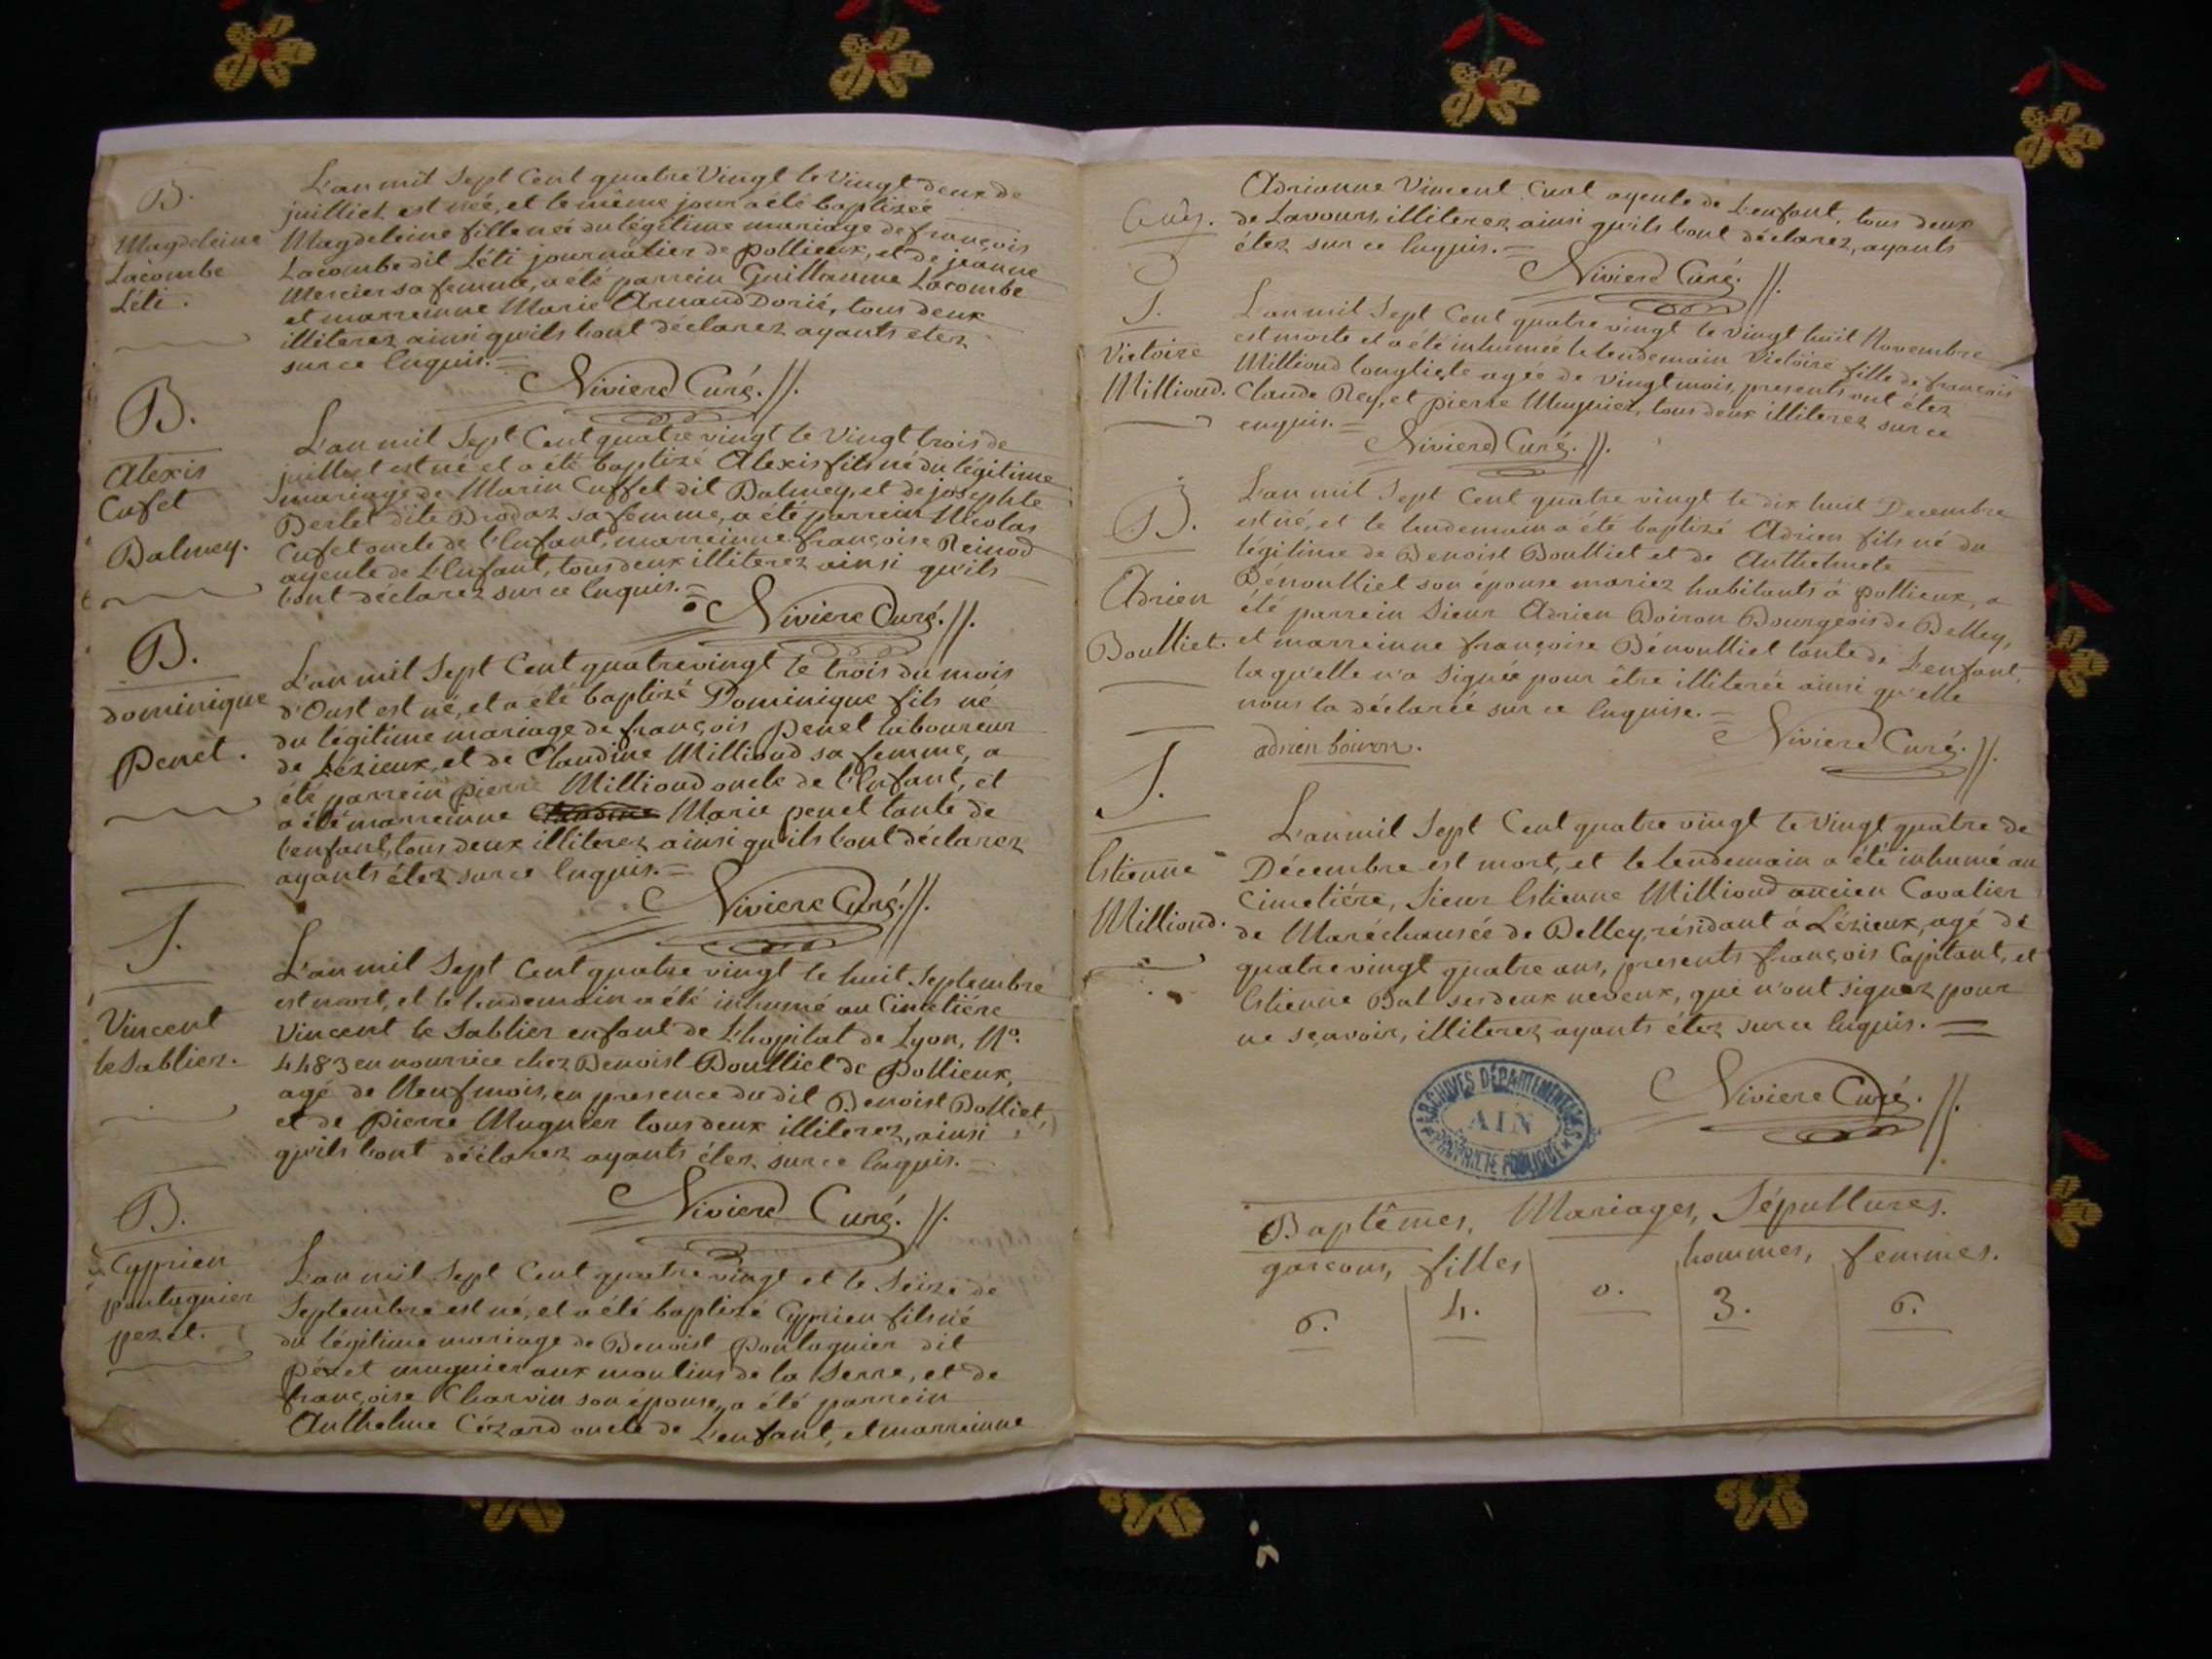 B.
Magdeleine
Lacombe
Léti.
L'an mil Sept Cent quatre Vingt le Vingt deux de
juilliet est née, et le même jour a été baptizée
Magdeleine fille née du légitime mariage de françois
Lacombe dit Léti journalier de pollieux, et de jeanne
Mercier sa femme, a été parrein Guillaume Lacombe
et marreinne Marie Arnaud Dorié, tous deux
illiterez ainsi qu'ils l'ont déclarez ayants etez
sur ce Enquis. =
Niviere Curé. //.
B.
Alexis
Cufet
Balmey.
L'an mil Sept Cent quatre vingt le Vingt trois de
juilliet est né et a été baptizé Alexis fils né du légitime
mariage de Marin Cuffet dit Balmey, et de josephte
Bertet dite Brodaz sa femme, a été parrein Nicolas
Cufet oncle de l'Enfant, marreinne françoise Reinod
ayeule de L'Enfant, tous deux illiterez ainsi qu'ils
l'ont déclarez sur ce Enquis. =
Niviere Curé. //.
B.
dominique
Penet.
L'an mil Sept Cent quatre vingt le trois du mois
d'Oust est né, et a été baptizé Dominique fils né
du légitime mariage de françois Penet laboureur
de Lézieux, et de Claudine Milliond sa femme, a
été parrein pierre Milliond oncle de l'Enfant, et
a été marreinne Marie penet tante de
l'enfant, tous deux illiterez ainsi qu'ils l'ont déclarez
ayants étez sur ce Enquis. =
Niviere Curé. //.
S.
Vincent
le Sablier.
L'an mil Sept Cent quatre vingt le huit Septembre
est mort, et le lendemain a été inhumé au Cimetiére
Vincent le Sablier enfant de L'hopital de Lyon, No.
4483 en nourrice chez Benoist Boulliet de Pollieux,
agé de Neuf mois, en presence du dit Benoist Bolliet,
et de Pierre Mugnier tous deux illiterez, ainsi
qu'ils l'ont déclarez ayants étez sur ce Enquis. =
Niviere Curé. //.
B.
Cyprien
pontagnier
pezet.
L'an mil Sept Cent quatre vingt et le Seize de
Septembre est né, et a été baptizé Cyprien fils né
du légitime mariage de Benoist Pontagnier dit
Pézet mugnier aux moulins de la Serre, et de
françoise Charvin son épouse, a été parrein
Anthelme Cézard oncle de L'enfant, et marreinne
Adrianne Vincent Curt ayeule de L'enfant, tous deux
de Lavours, illiterez ainsi qu'ils l'ont déclarez, ayants
étez sur ce Enquis. =
Niviere Curé. //.
S.
Victoire
Milliond.
L'an mil Sept Cent quatre vingt le vingt huit Novembre
est morte et a été inhumée le lendemain Victoire fille de françois
Milliond agée de vingt mois, presents ont étez
Claude Rey, et pierre Mugnier, tous deux illiterez sur ce
enquis. =
Niviere Curé. //.
B.
Adrien
Boulliet.
L'an mil Sept Cent quatre vingt le dix huit Decembre
est né, et le lendemain a été baptizé Adrien fils né du
légitime de Benoist Boulliet et de Anthelmete
Bénoulliet son épouse mariez habitants à pollieux, a
été parrein Sieur Adrien Boiron Bourgeois de Belley,
et marreinne françoise Bénoulliet tante de L'enfant,
laqu'elle n'a Signée pour être illiterée ainsi qu'elle
nous la déclarée sur ce Enquise. =
Niviere Curé. //.
adrien boiron.
S.
Estienne
Milliond.
L'an mil Sept Cent quatre vingt le Vingt quatre de
Décembre est mort, et le lendemain a été inhumé au
Cimetiére, Sieur Estienne Milliond ancien Cavalier
de Maréchausée de Belley, résidant à Lézieux, agé de
quatre vingt quatre ans, presents françois Capitant, et
Estienne Bal ses deux neveux, qui n'ont signez pour
ne sçavoir, illiterez ayants étez sur ce Enquis. =
Niviere Curé. //.
ARCHIVES DÉPARTEMENTALES
AIN
PROPRIÉTÉ PUBLIQUE
Baptêmes, Mariages, Sépultures.
garçons, filles hommes, femmes.
6. 4. 0. 3. 6.